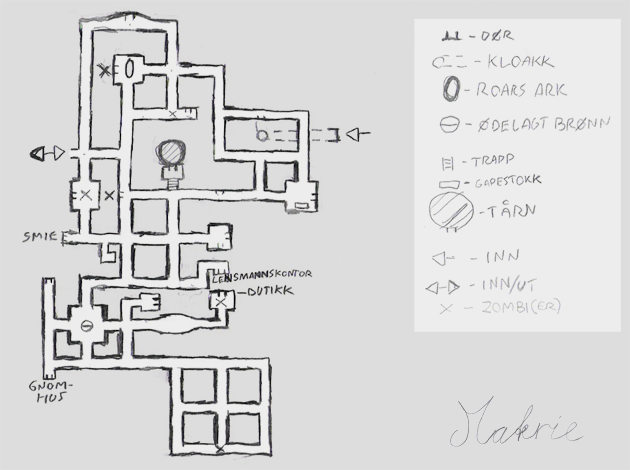 SMIE
LENSMANNSKONTOR
-BUTIKK
GNOM-
HUS
-DØR
-KLOAKK
-ROARS ARK
-ØDELAGT BRØNN
-TRAPP
-GAPESTOKK
-TÅRN
-INN
-INN/UT
-ZOMBI(ER)
Makrie